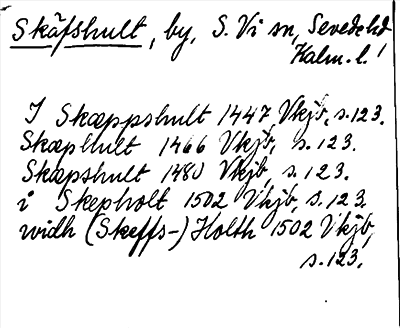 Skäfshult, by, S. Vi sn, Sevede hd
Kalm. l.
I Skæppshult 1447 Vkjb, s. 123.
Skæplhult 1466 Vkjb, s. 123.
Skæpshult 1480 Vkjb, s. 123.
i Skepholt 1502 Vkjb, s. 123.
widh (Skeffs-) Holth 1502 Vkjb,
s. 123.